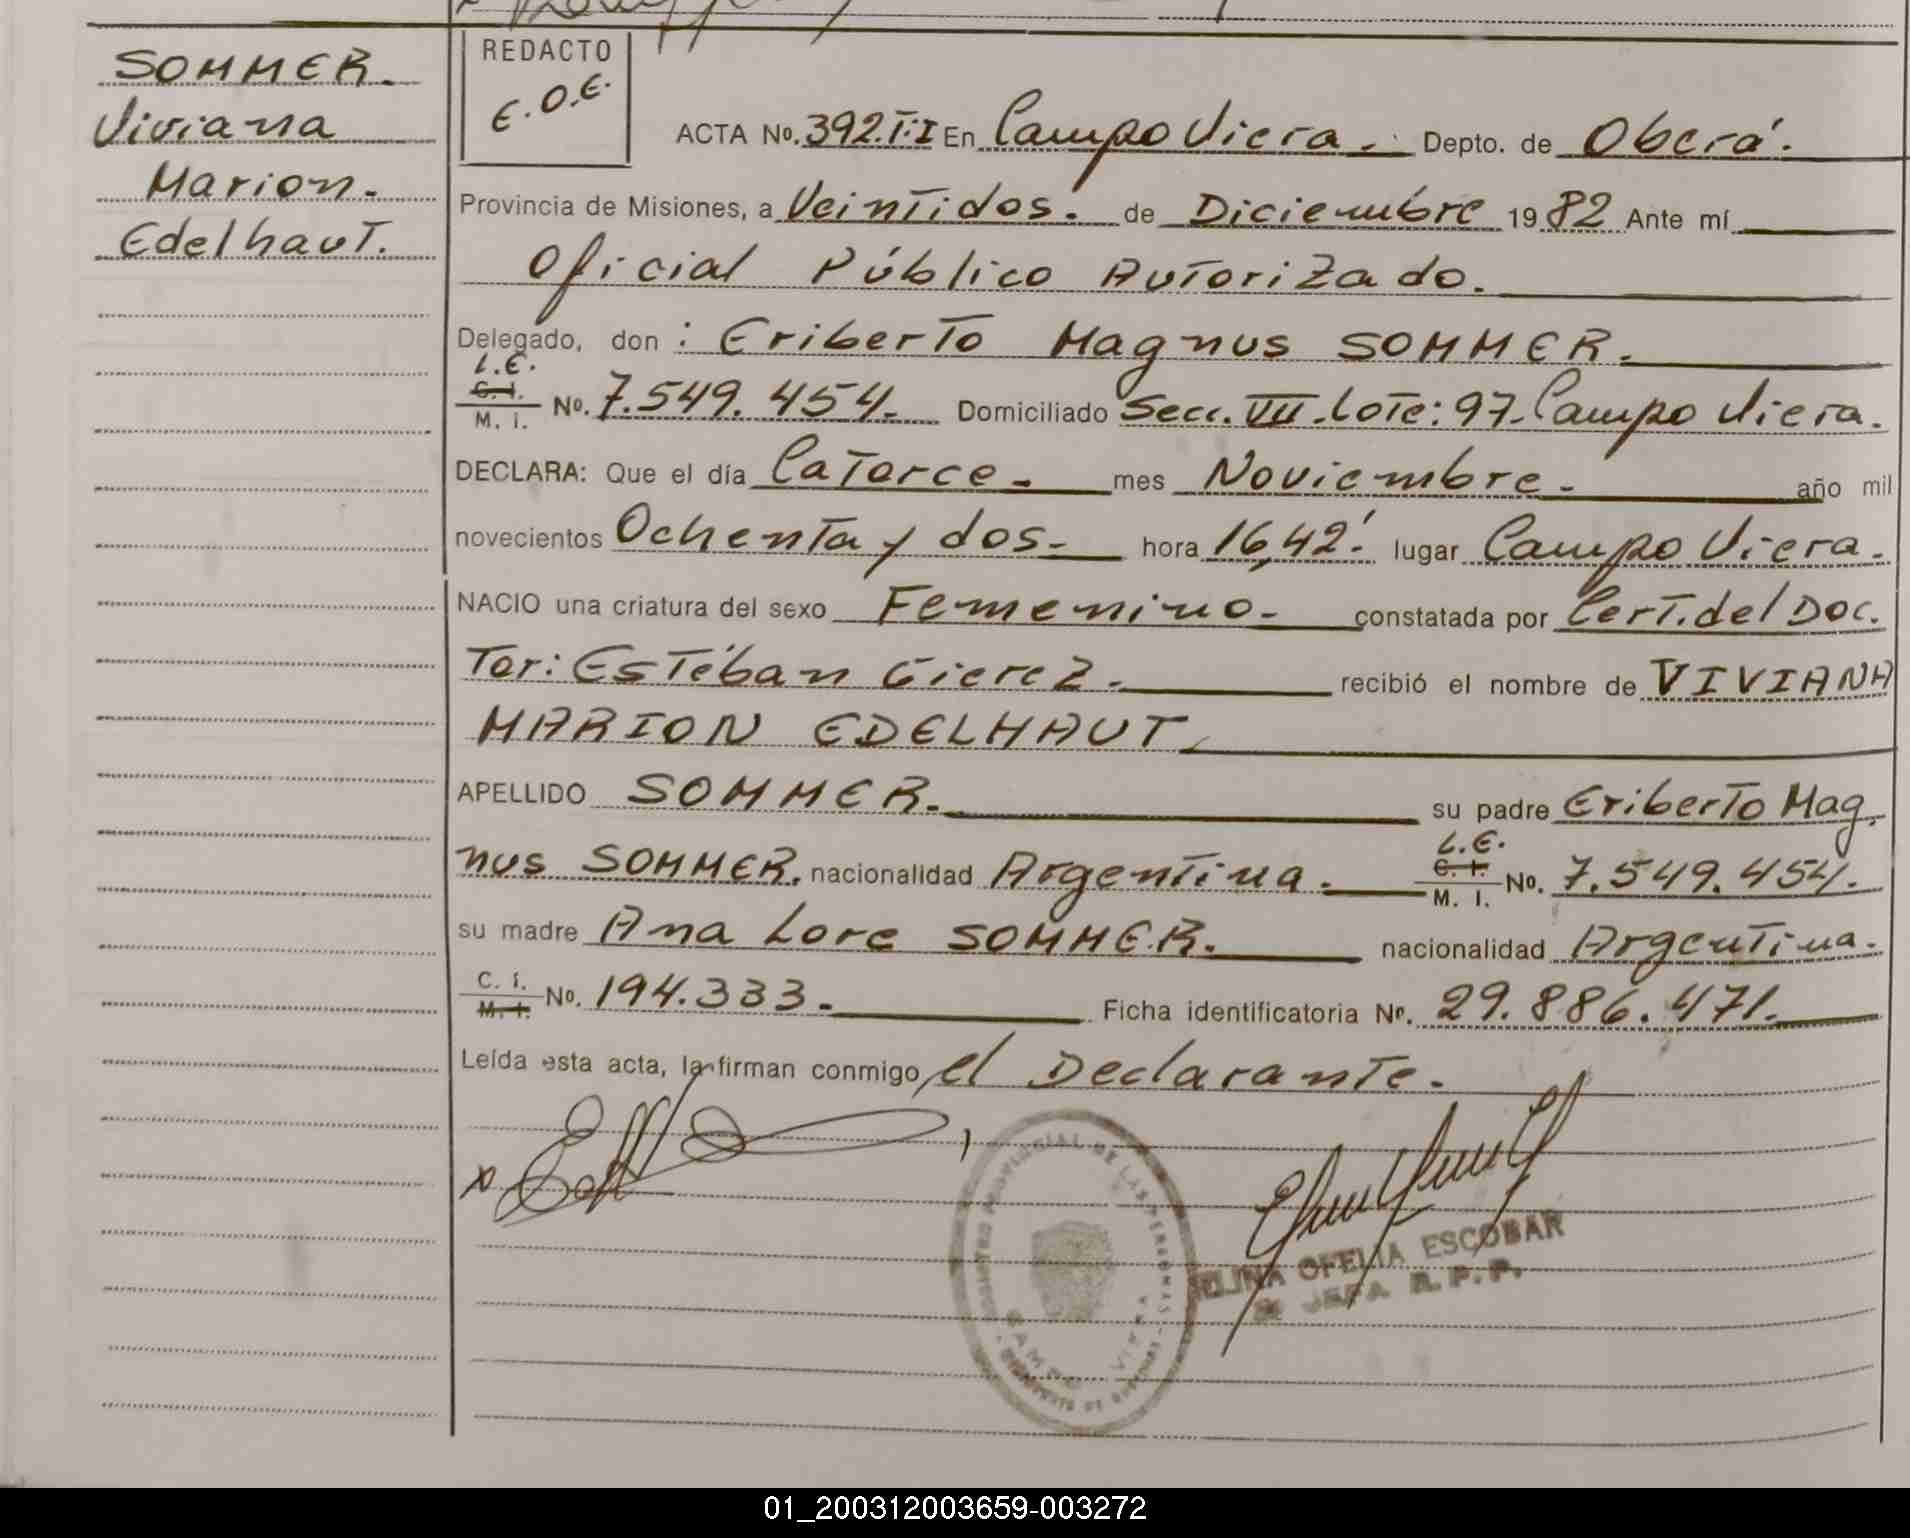 SOMMER.
Viviana
Marion.
Edelhaut.
REDACTO
E.O.E.
ACTA No. 392.T:I En Campo Viera. Depto. de Oberá.
Provincia de Misiones, a Veintidos. de Diciembre 1982 Ante mí
Oficial Público Autorizado.
Delegado, don : Eriberto Magnus SOMMER.
L.E.
C. I.
M. I. No. 7.549.454. Domiciliado Secc. VIII. Lote: 97. Campo Viera.
DECLARA: Que el día Catorce. mes Noviembre. año mil
novecientos Ochenta y dos. hora 16,42'. lugar Campo Viera.
NACIO una criatura del sexo Femenino. constatada por Cert. del Doc.
Tor: Estéban Gierez. recibió el nombre de VIVIANA
MARION EDELHAUT.
APELLIDO SOMMER. su padre Eriberto Mag.
nus SOMMER. nacionalidad Argentina. L.E. C. I. M. I. No. 7.549.454.
su madre Ana Lore SOMMER. nacionalidad Argentina.
C. I.
M. I. No. 194.333. Ficha identificatoria No. 29.886.471.
Leída esta acta, la firman conmigo el Declarante.
REGISTRO PROVINCIAL DE LAS PERSONAS
CAMPO VIERA
OFELIA ESCOBAR
JEFA R.P.P.
01_200312003659-003272